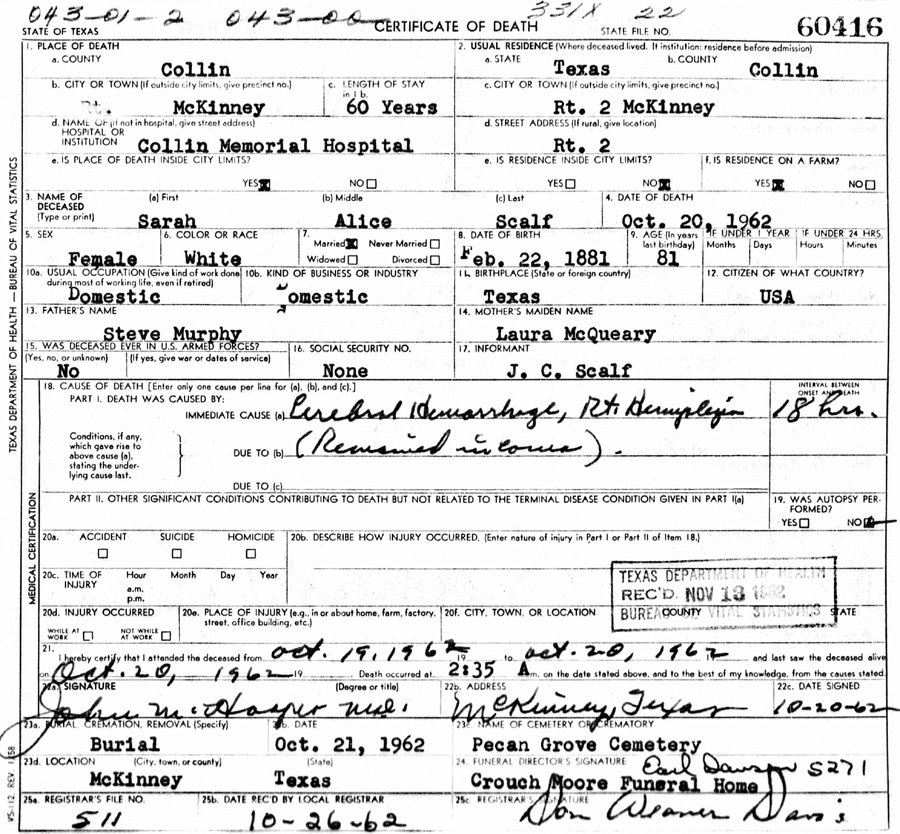 043-01-2 043-00 331X 22
STATE OF TEXAS CERTIFICATE OF DEATH STATE FILE NO. 60416
1. PLACE OF DEATH 2. USUAL RESIDENCE (Where deceased lived. If institution: residence before admission)
a. COUNTY a. STATE b. COUNTY
Collin Texas Collin
b. CITY OR TOWN (If outside city limits, give precinct no.) c. LENGTH OF STAY in 1 b. c. CITY OR TOWN (If outside city limits, give precinct no.)
Rt. McKinney 60 Years Rt. 2 McKinney
d. NAME OF (If not in hospital, give street address) HOSPITAL OR INSTITUTION d. STREET ADDRESS (If rural, give location)
Collin Memorial Hospital Rt. 2
e. IS PLACE OF DEATH INSIDE CITY LIMITS? e. IS RESIDENCE INSIDE CITY LIMITS? f. IS RESIDENCE ON A FARM?
YES☒ NO☐ YES☐ NO☒ YES☒ NO☐
3. NAME OF DECEASED (Type or print) (a) First (b) Middle (c) Last 4. DATE OF DEATH
Sarah Alice Scalf Oct. 20, 1962
5. SEX 6. COLOR OR RACE 7. Married☒ Never Married☐ Widowed☐ Divorced☐ 8. DATE OF BIRTH 9. AGE (In years last birthday) IF UNDER 1 YEAR Months Days IF UNDER 24 HRS. Hours Minutes
Female White Feb. 22, 1881 81
10a. USUAL OCCUPATION (Give kind of work done during most of working life, even if retired) 10b. KIND OF BUSINESS OR INDUSTRY 11. BIRTHPLACE (State or foreign country) 12. CITIZEN OF WHAT COUNTRY?
Domestic Domestic Texas USA
13. FATHER'S NAME 14. MOTHER'S MAIDEN NAME
Steve Murphy Laura McQueary
15. WAS DECEASED EVER IN U.S. ARMED FORCES? 16. SOCIAL SECURITY NO. 17. INFORMANT
(Yes, no, or unknown) (If yes, give war or dates of service)
No None J. C. Scalf
18. CAUSE OF DEATH [Enter only one cause per line for (a), (b), and (c).] INTERVAL BETWEEN ONSET AND DEATH
PART I. DEATH WAS CAUSED BY:
IMMEDIATE CAUSE (a) Cerebral Hemorrhage, Rt. Hemiplegia 18 hrs.
Conditions, if any, which gave rise to above cause (a), stating the underlying cause last.
DUE TO (b) (Remained in coma).
DUE TO (c)
PART II. OTHER SIGNIFICANT CONDITIONS CONTRIBUTING TO DEATH BUT NOT RELATED TO THE TERMINAL DISEASE CONDITION GIVEN IN PART I(a) 19. WAS AUTOPSY PERFORMED?
YES☐ NO☒
20a. ACCIDENT SUICIDE HOMICIDE 20b. DESCRIBE HOW INJURY OCCURRED. (Enter nature of injury in Part I or Part II of Item 18.)
☐ ☐ ☐
20c. TIME OF INJURY Hour Month Day Year
a.m.
p.m.
TEXAS DEPARTMENT OF HEALTH
REC'D. NOV 13 1962
BUREAU VITAL STATISTICS
20d. INJURY OCCURRED 20e. PLACE OF INJURY (e.g., in or about home, farm, factory, street, office building, etc.) 20f. CITY, TOWN, OR LOCATION COUNTY STATE
WHILE AT WORK ☐ NOT WHILE AT WORK ☐
21. I hereby certify that I attended the deceased from Oct. 19, 1962 19 to Oct. 20, 1962 and last saw the deceased alive
on Oct. 20, 1962 19 Death occurred at 2:35 A m. on the date stated above, and to the best of my knowledge, from the causes stated.
22a. SIGNATURE (Degree or title) 22b. ADDRESS 22c. DATE SIGNED
McKinney, Texas 10-20-62
23a. BURIAL, CREMATION, REMOVAL (Specify) 23b. DATE 23c. NAME OF CEMETERY OR CREMATORY
Burial Oct. 21, 1962 Pecan Grove Cemetery
23d. LOCATION (City, town, or county) (State) 24. FUNERAL DIRECTOR'S SIGNATURE Earl Dawson 5271
McKinney Texas Crouch Moore Funeral Home
25a. REGISTRAR'S FILE NO. 25b. DATE REC'D BY LOCAL REGISTRAR 25c. REGISTRAR'S SIGNATURE
511 10-26-62 Don Weaver Davis
TEXAS DEPARTMENT OF HEALTH — BUREAU OF VITAL STATISTICS
MEDICAL CERTIFICATION
VS-112 REV 1/58